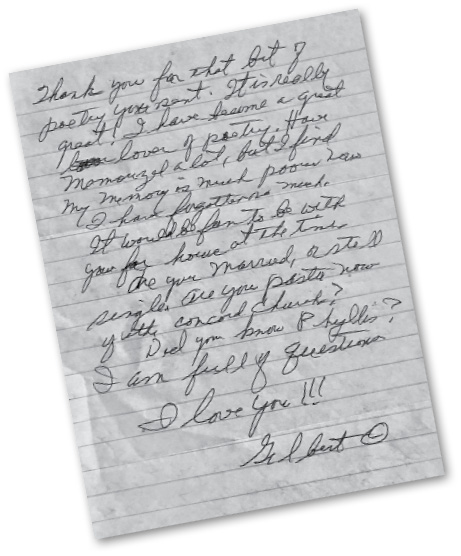 Thank you for that bit of
poetry you sent. It is really
great! I have become a great
lover of poetry. Have
Memorized a lot, but I find
my memory is much poorer now
I have forgotten so much.
It would be fun to be with
you for hours at the time.
Are you married, or still
single. Are you pastor now
of the concord Church?
Did you know Phyllis?
I am full of questions
I love you!!!
Gilbert